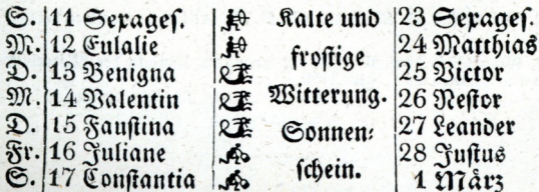 S. 11 Sexageſ. Kalte und 23 Sexageſ.
M. 12 Eulalie froſtige 24 Matthias
D. 13 Benigna Witterung. 25 Victor
M. 14 Valentin Sonnen⸗ 26 Neſtor
D. 15 Fauſtina ſchein. 27 Leander
Fr. 16 Juliane 28 Juſtus
S. 17 Conſtantia 1 März